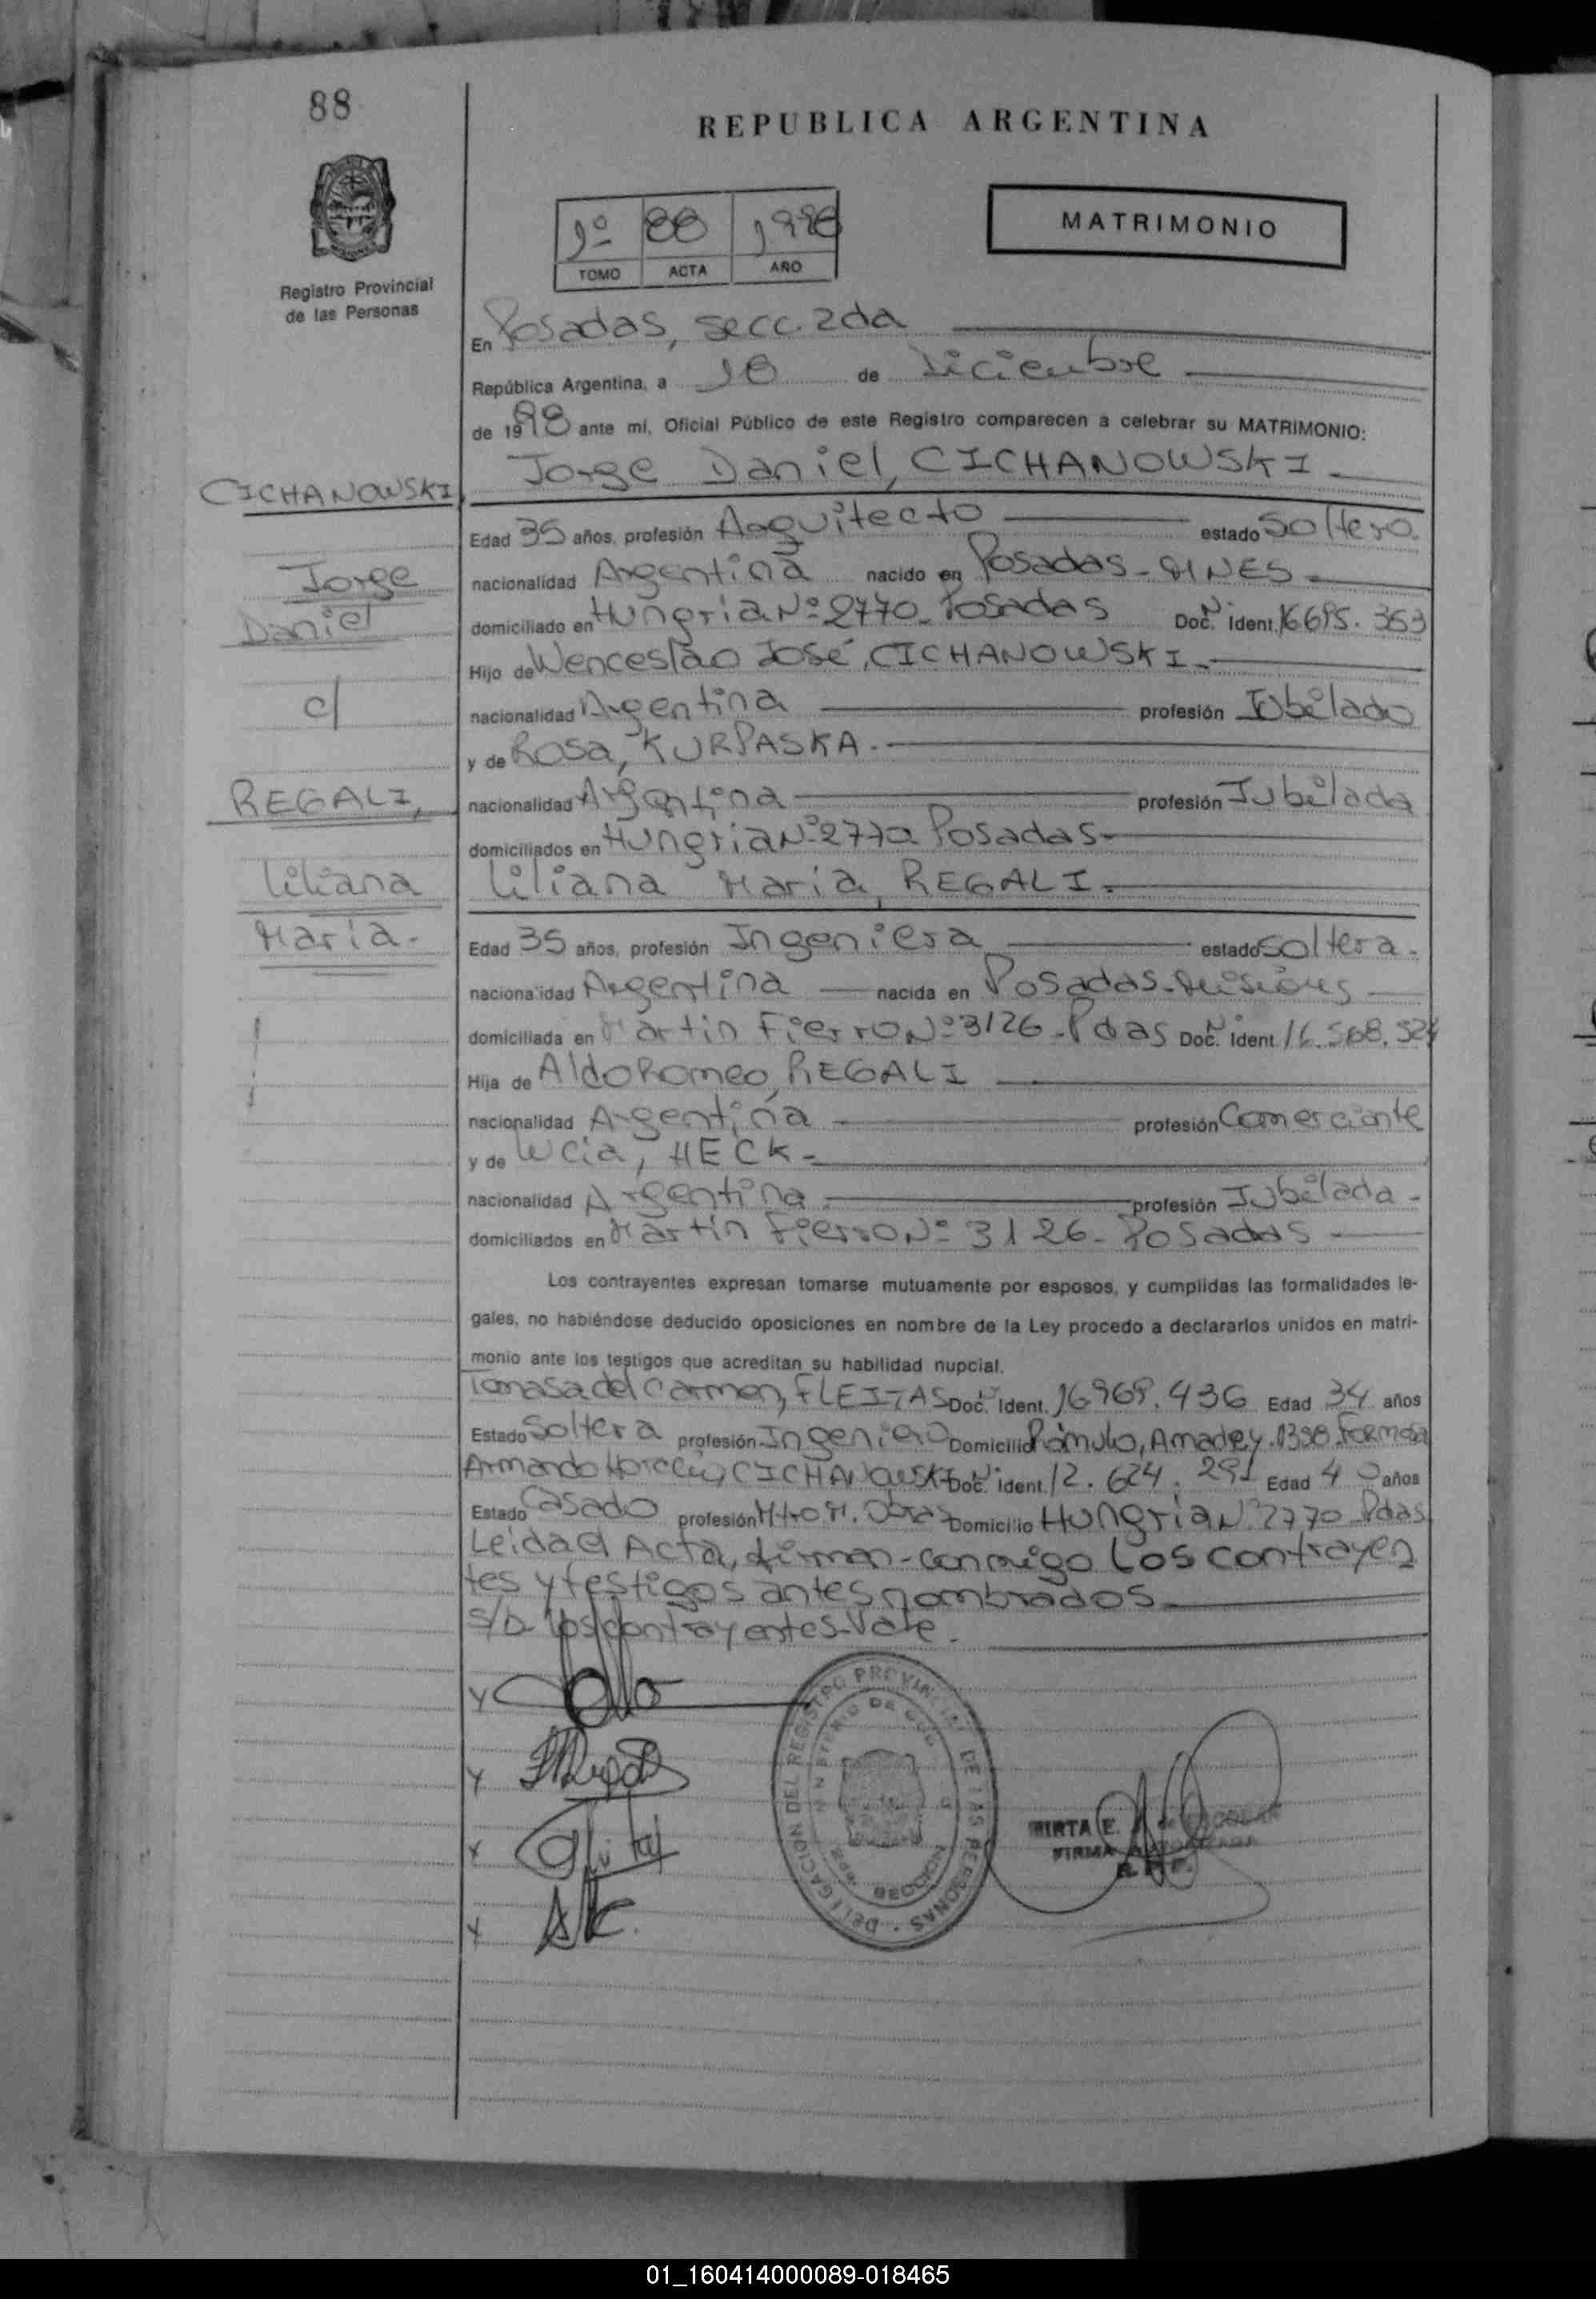 88
REPUBLICA ARGENTINA
1º 88 1998
TOMO ACTA AÑO
MATRIMONIO
Registro Provincial
de las Personas
En Posadas, secc. 2da
República Argentina, a 18 de Diciembre
de 1998 ante mí, Oficial Público de este Registro comparecen a celebrar su MATRIMONIO:
Jorge Daniel, CICHANOWSKI
CICHANOWSKI,
Edad 35 años, profesión Arquitecto estado Soltero.
Jorge
nacionalidad Argentina nacido en Posadas - MNES
Daniel
domiciliado en Hungria Nº 2770 - Posadas Doc. N Ident. 16.695.353
Hijo de Wenceslao José, CICHANOWSKI
c/
nacionalidad Argentina profesión Jubilado
y de Rosa, KURPASKA.-
REGALI,
nacionalidad Argentina profesión Jubilada
domiciliados en Hungria Nº 2770 Posadas
Liliana
Liliana Maria, REGALI.
Maria.-
Edad 35 años, profesión Ingeniera estado Soltera.
nacionalidad Argentina nacida en Posadas - Misiones
domiciliada en Martin Fierro Nº 3126 - Pdas Doc. N Ident. 16.568.524
Hija de Aldo Romeo, REGALI
nacionalidad Argentina profesión Comerciante
y de Lucia, HECK -
nacionalidad Argentina profesión Jubilada -
domiciliados en Martin Fierro Nº 3126 - Posadas
Los contrayentes expresan tomarse mutuamente por esposos, y cumplidas las formalidades le-
gales, no habiéndose deducido oposiciones en nombre de la Ley procedo a declararlos unidos en matri-
monio ante los testigos que acreditan su habilidad nupcial.
Tomasa del Carmen, FLEITAS Doc. N Ident. 16969.436 Edad 34 años
Estado Soltera profesión Ingeniero Domicilio Rómulo, Amadey. 1338 Formosa
Armando Horacio, CICHANOWSKI Doc. N Ident. 12.624.291 Edad 40 años
Estado Casado profesión Mtro M. Obras Domicilio Hungria N. 2770 - Pdas
Leida el Acta, firman - conmigo los contrayen
tes y testigos antes nombrados
S/b - los contrayentes - Vale.
DELEGACION DEL REGISTRO PROVINCIAL DE LAS PERSONAS
MINISTERIO DE GOB
SECCION
MIRTA E.
FIRMA
01_160414000089-018465